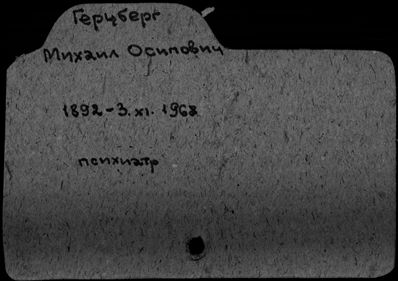 Герцберг
Михаил Осипович
1892 - 3.XI.1968
психиатр